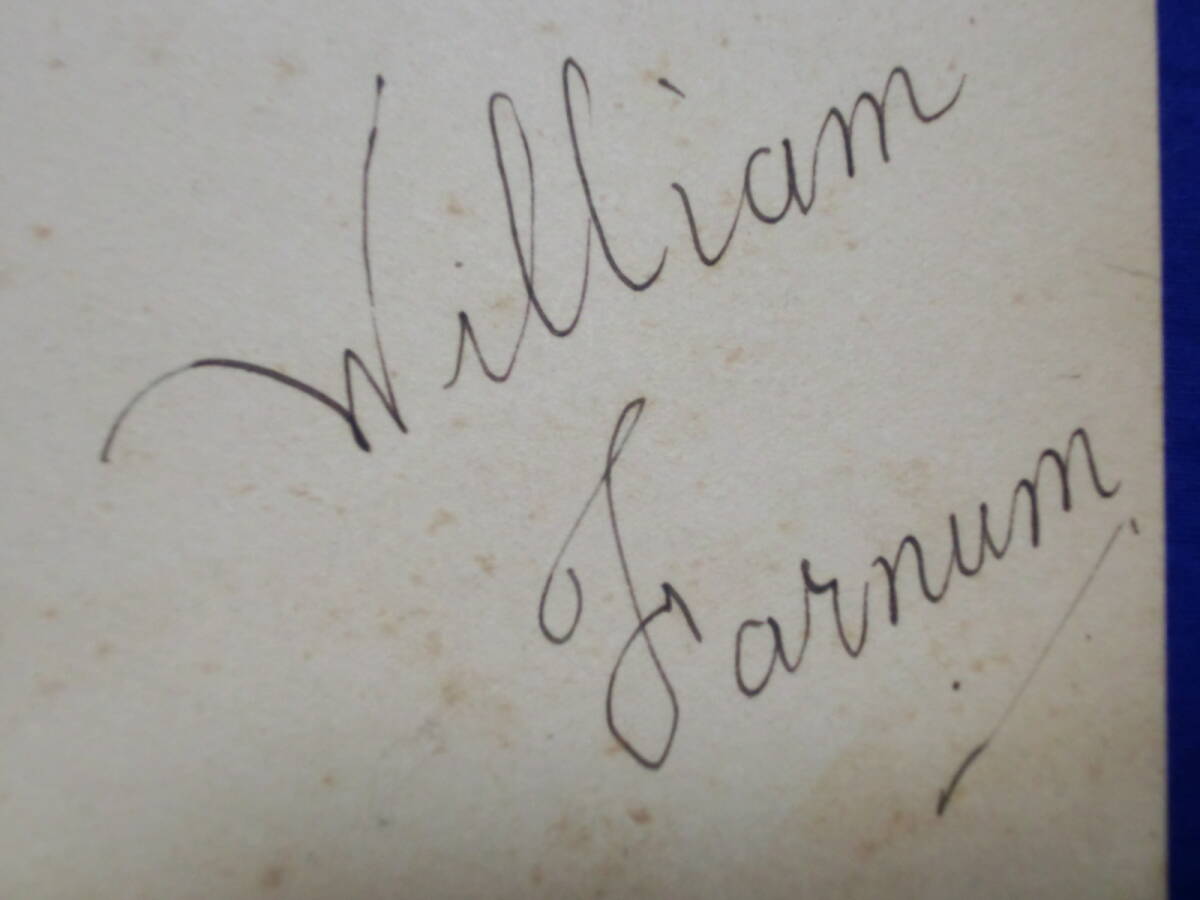 William
Farnum